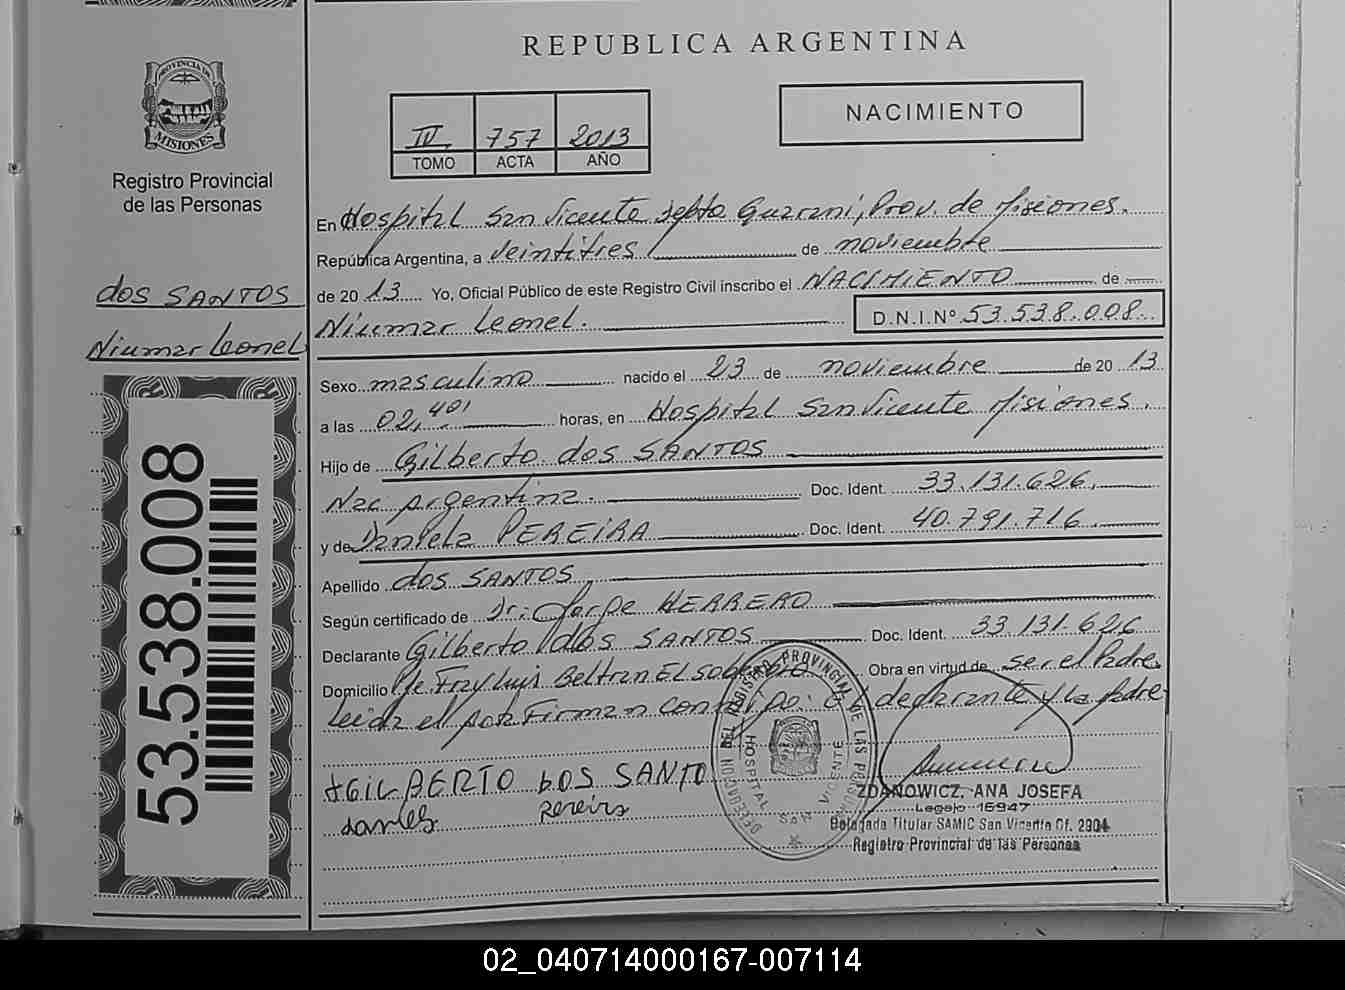 REPUBLICA ARGENTINA
PROVINCIA DE
MISIONES
Registro Provincial
de las Personas
dos SANTOS
Niumar Leonel
53.538.008
IV 757 2013
TOMO ACTA AÑO
NACIMIENTO
En Hospital San Vicente Depto Guarani, Prov. de Misiones.
República Argentina, a veintitres de noviembre
de 20 13 Yo, Oficial Público de este Registro Civil inscribo el NACIMIENTO de
Niumar Leonel. D.N.I.Nº 53.538.008
Sexo masculino nacido el 23 de noviembre de 20 13
a las 02,40' horas, en Hospital San Vicente Misiones.
Hijo de Gilberto dos SANTOS
Nac Argentina. Doc. Ident. 33.131.626.
y de Daniela PEREIRA Doc. Ident. 40.791.716
Apellido dos SANTOS,
Según certificado de Dr: Jorge HERRERO
Declarante Gilberto dos SANTOS Doc. Ident. 33 131.626
Domicilio Pje Fray Luis Beltran El Soberbio Obra en virtud de ser el Padre
Leida el acta Firman conmigo: declarante y La Madre
GILBERTO DOS SANTO
Pereira
DELEGACION
DEL REGISTRO PROVINCIAL DE LAS PERSONAS
HOSPITAL SAN VICENTE
ZDANOWICZ, ANA JOSEFA
Legajo 16947
Delegada Titular SAMIC San Vicente Of. 2904
Registro Provincial de las Personas
02_040714000167-007114